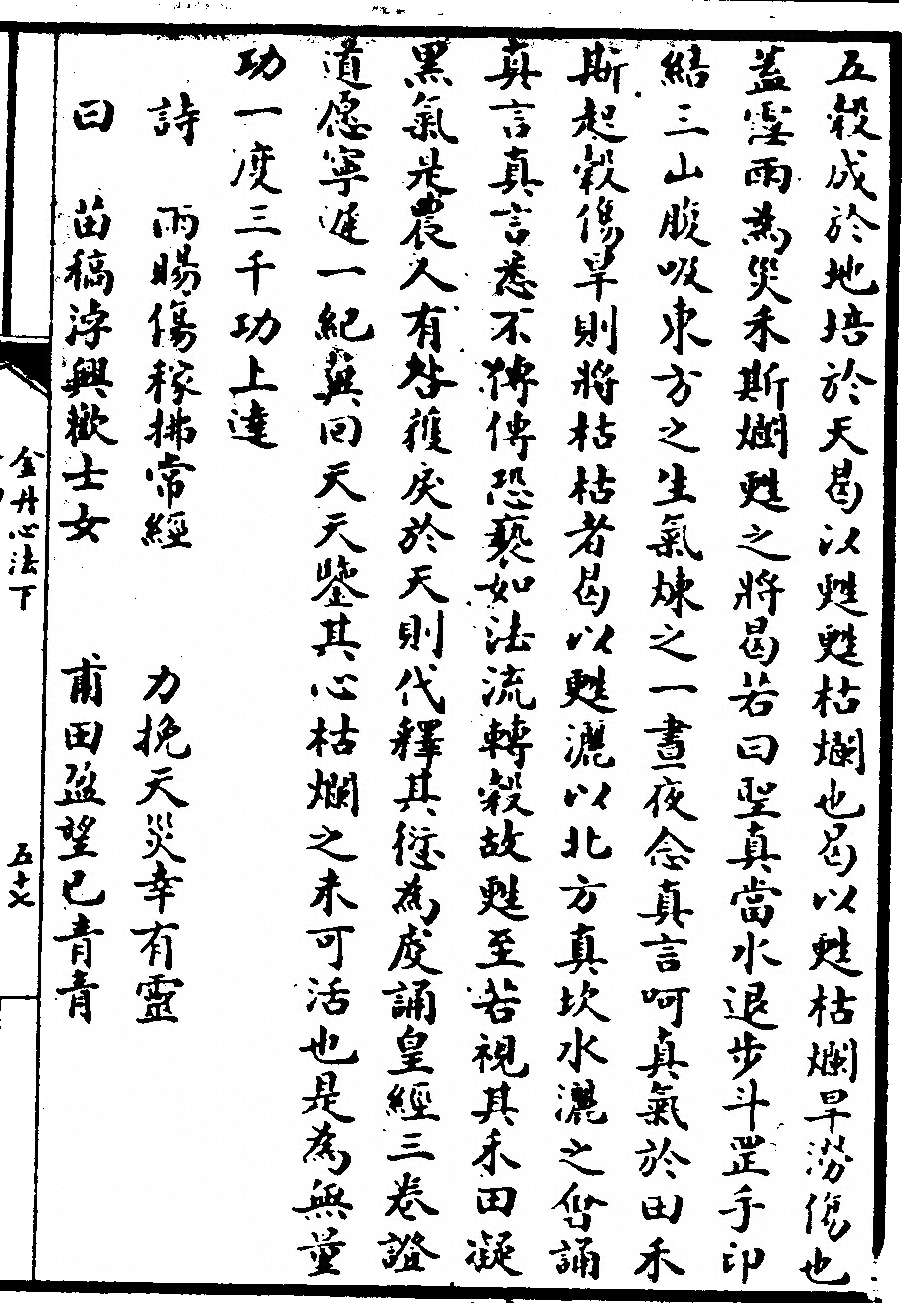 五穀成於地培於天曷以甦甦枯爛也曷以甦枯爛旱澇傷也
蓋霪雨為災禾斯爛甦之將曷若曰聖真當水退步斗罡手印
結三山腹吸東方之生氣煉之一晝夜念真言呵真氣於田禾
斯起穀傷旱則將枯枯者曷以甦灑以北方真坎水灑之皆誦
真言真言悉不轉傳恐褻如法流轉穀故甦至若視其禾田凝
黑氣是農人有咎獲戾於天則代釋其愆為虔誦皇經三卷證
道愿寧遲一紀冀回天天鑒其心枯爛之未可活也是為無量
功一度三千功上達
詩 雨暘傷稼拂常經 力挽天災幸有靈
曰 苗稿浡興歡士女 甫田盈望已青青
金丹心法下
五十七